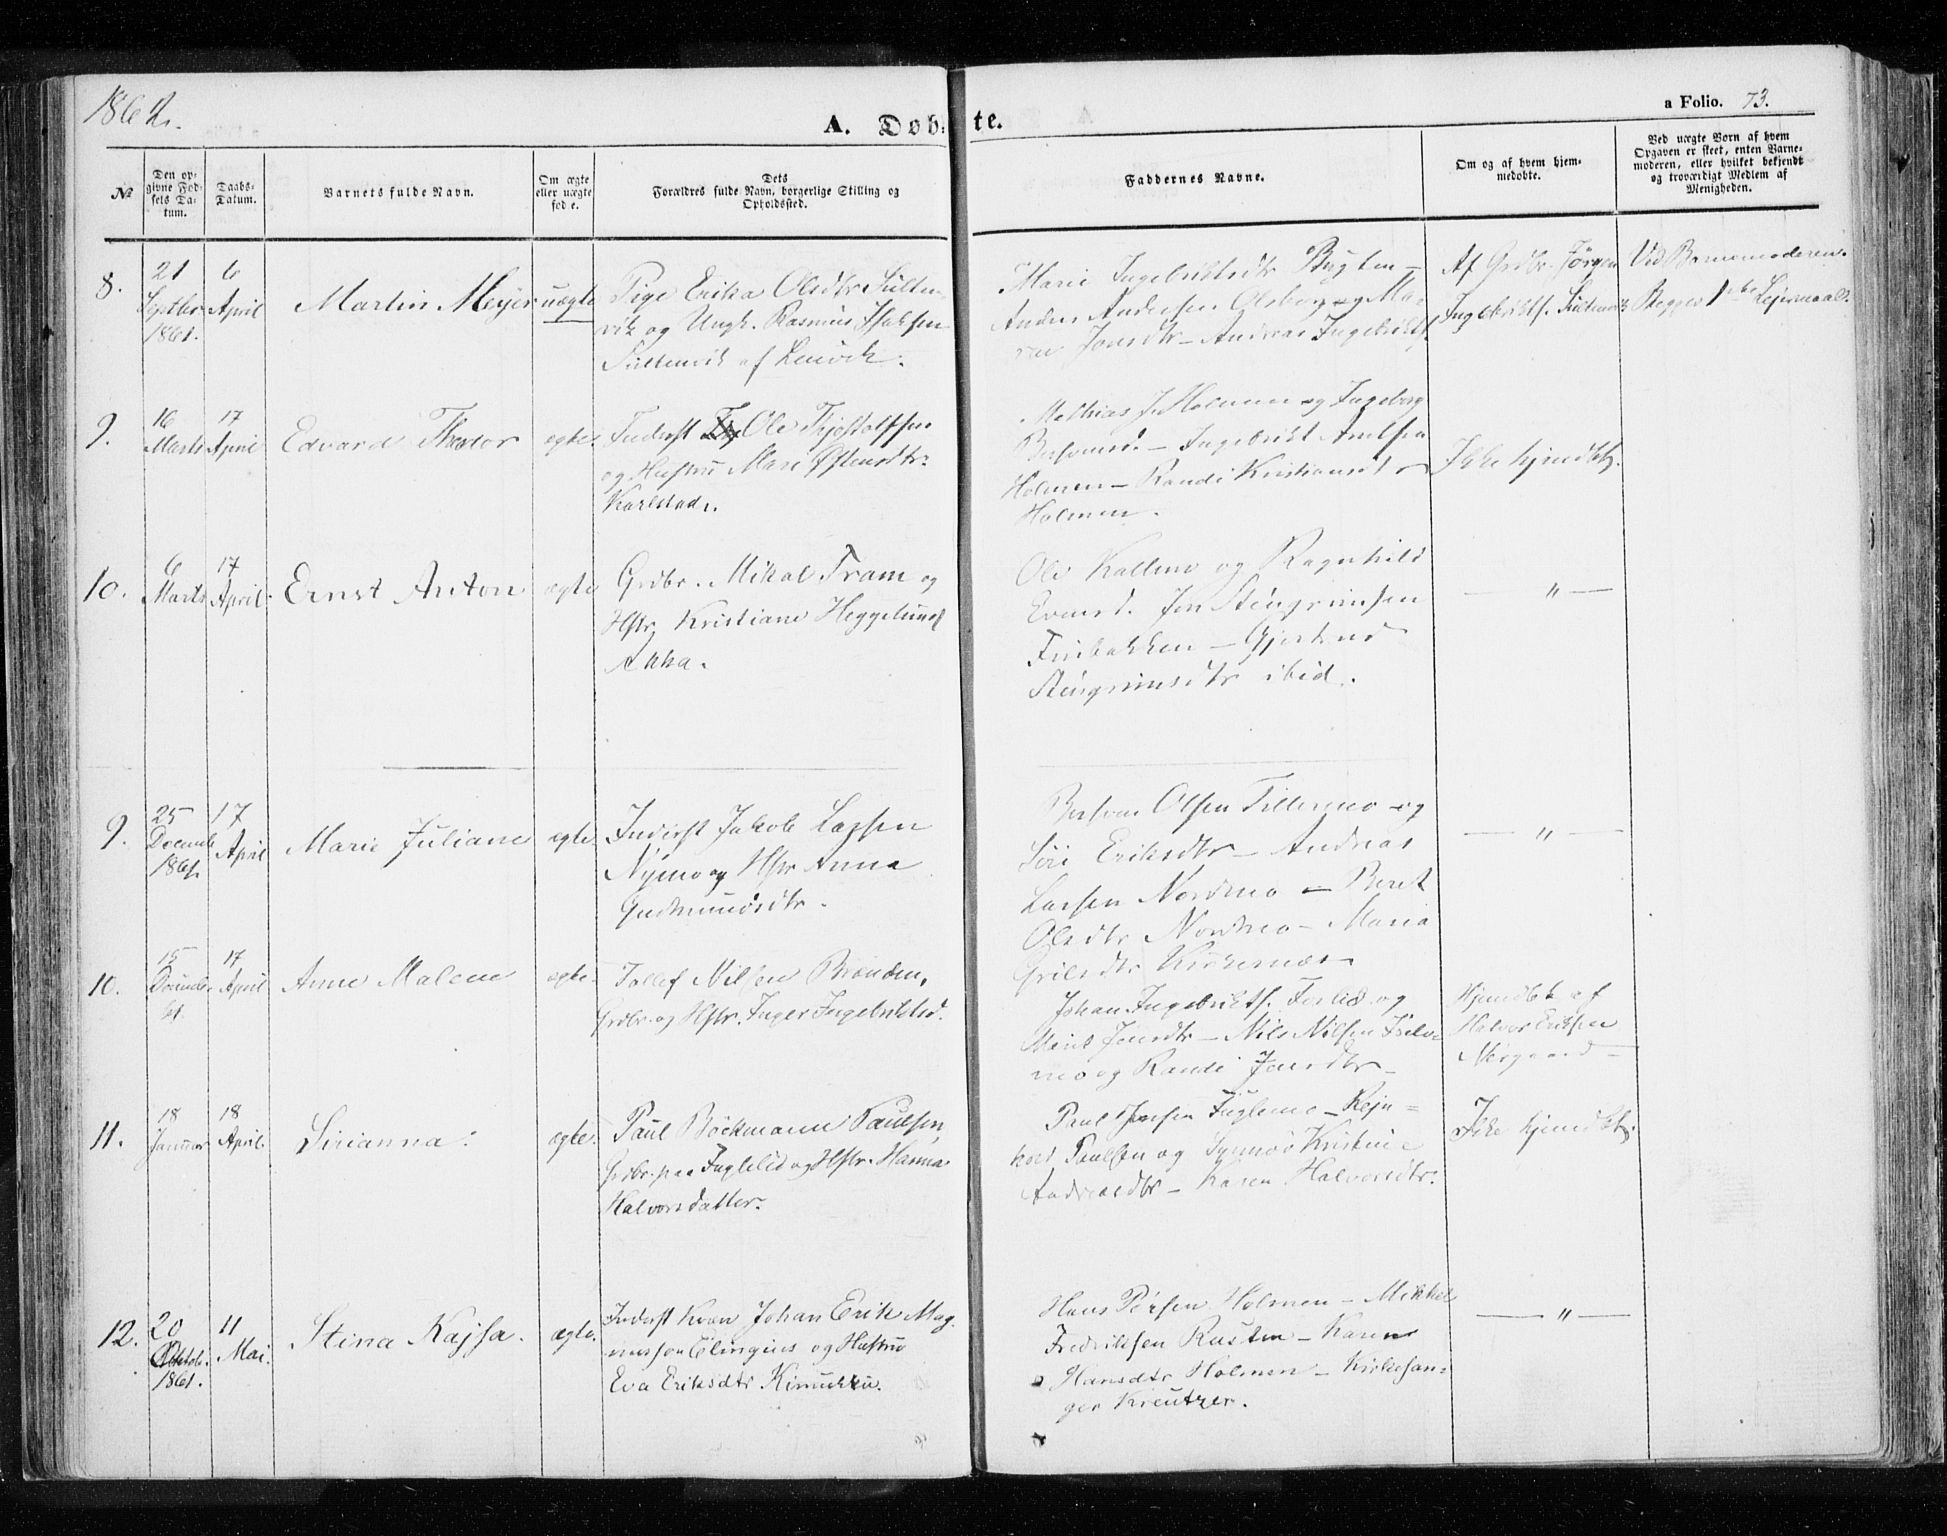 1862.
A. Døbte.
a Folio. 73.
№
Den opgivne Fødsels Datum.
Daabs-Datum.
Barnets fulde Navn.
Om ægte eller uægte fød e.
Dets Forældres fulde Navn, borgerlige Stilling og Opholdssted.
Faddernes Navne.
Om og af hvem hjemmedøbte.
Ved uægte Børn af hvem Opgaven er skeet, enten Barnemoderen, eller hvilket bekjendt og troværdigt Medlem af Menigheden.
8.
21
Septbr
1861.
6
April
Martin Meyer
uægte
Pige Erika Olsdtr
vik og Ungk. Rasmus Isaksen
af Lenvik.
Marie Ingebriktsdtr
Anders Andersen Olsborg og Ma-
Jonsdtr - Andreas Ingebriktsf
Af Grdbr. Jørgen
Ingebriktf.
Ved Barnemoderen.
Begges 1ste Leiermaal.
9.
16
Marts
17
April
Edvard Theodor
ægte.
Inderst Ole Tjostolfsen
og Hustru Mari Østensdtr.
Karlstad.
Mathias J. Holmen og Ingeborg
Ingebrikt
Holmen - Randi Kristiansdtr
Holmen.
Ikke hjemdbt.
10.
6
Marts
17
April.
Ernst Anton
ægte
Grdbr. Mikal Tram og
Hstr Kristiane Heggelund
Ahka.
Ole Kallmo og Ragnhild
Evensd. Jon Stengrimsen
- Gjertrud
Stengrimsdtr ibid.
— " —
9.
25
Decemb
1861.
17
April
Marie Juliane
ægte.
Inderst Jakob Larsen
Nymo og Hstr Anna
Gudmundsdtr.
Olsen og
Siri Eriksdtr - Andreas
Larsen Nordmo - Beret
Olsdtr Nordmo - Maria
Kirkesnes
— " —
10.
15
Decemb.
61.
17
April
Anne Malene
ægte.
Tollef Nilsen Brønden,
Grdbr. og Hstr. Inger Ingebriktsd.
Johan Ingebriktsf. og
Marit Jonsdtr - Nils Nilsen
mo og Randi Jonsdtr -
Hjemdbt af
Halvor Eriksen
-
11.
18
Januar
18
April.
Sirianna.
ægte.
Paul Bøckmann Paulsen,
Grdbr. paa Fuglelid og Hstr. Hanna
Halvorsdatter.
Paul Jensen Fuglemo - Rejn=
hort Paulsen og Synnøv Kristine
Andreasdtr - Karen Halvorsdtr.
Ikke hjemdbt.
12.
20
Oktob.
1861.
11
Mai.
Stina Kajsa.
ægte.
Inderst Kvæn Johan Erik Mag-
nusson Elingius og Hustru
Eva Eriksdtr
Hans Holmen - Mikkel
Fredriksen Rusten - Karen
Hansdtr Holmen - Kirkesan-
ger Kreutzer.
— " —